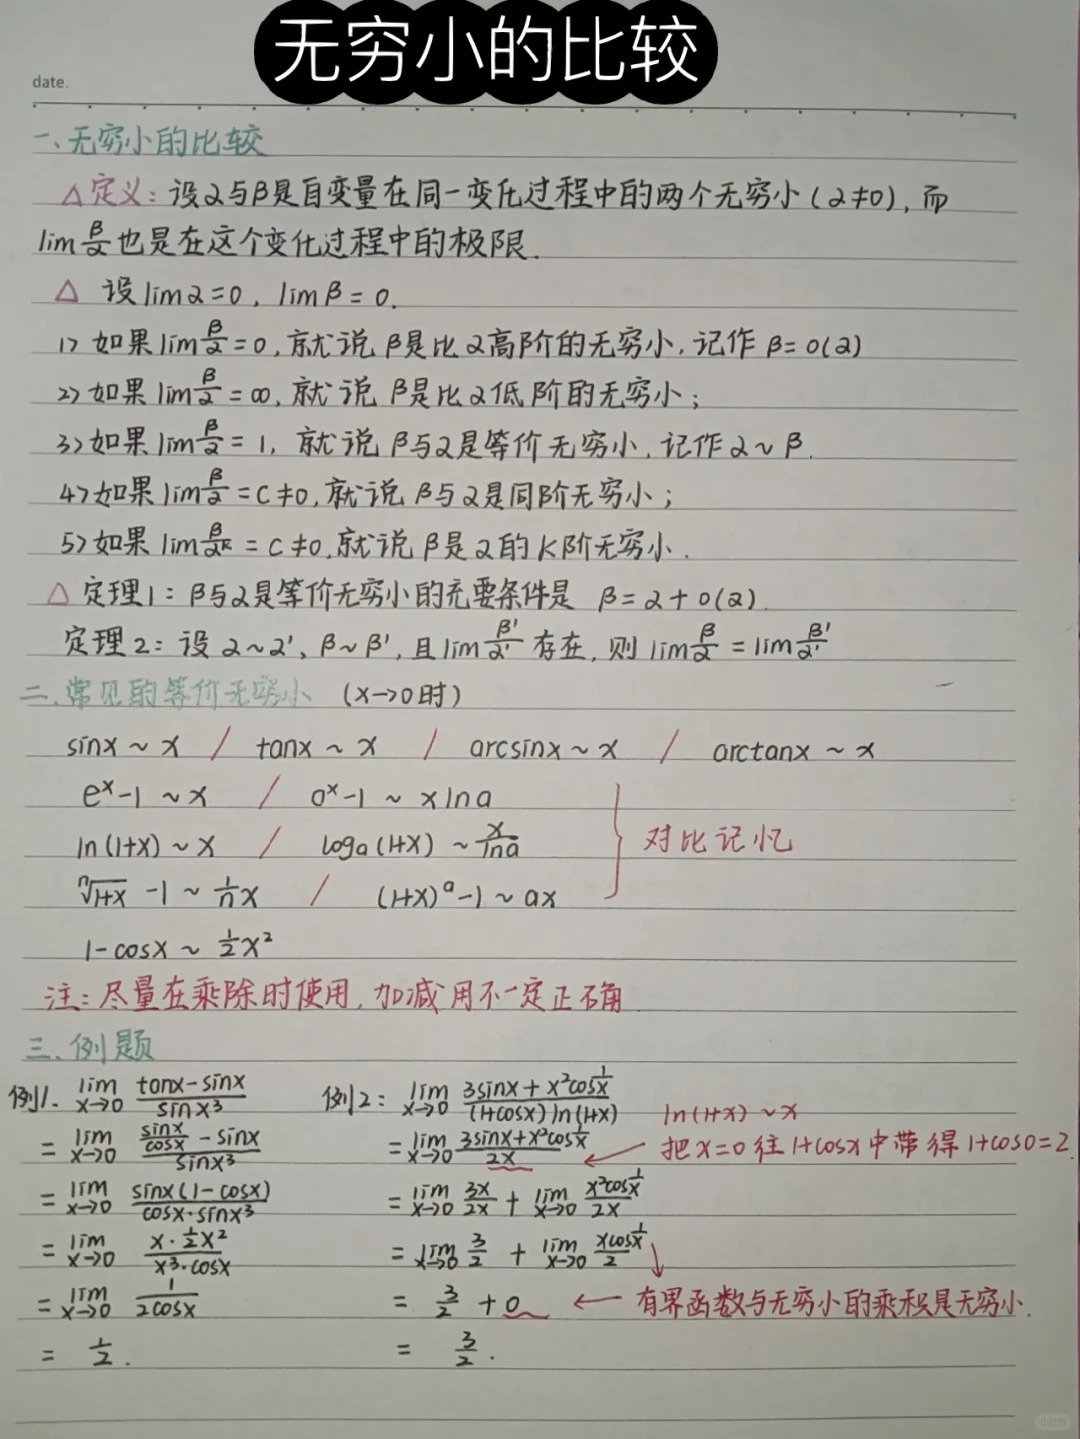 无穷小的比较
date.
一、无穷小的比较
△定义：设α与β是自变量在同一变化过程中的两个无穷小(α≠0)，而
lim β/α 也是在这个变化过程中的极限.
△ 设limα=0, limβ=0.
1> 如果lim β/α=0,就说β是比α高阶的无穷小,记作β=o(α)
2> 如果lim β/α=∞,就说β是比α低阶的无穷小;
3> 如果lim β/α=1, 就说β与α是等价无穷小,记作α~β.
4> 如果lim β/α=C≠0,就说β与α是同阶无穷小;
5> 如果lim β/α^k=C≠0,就说β是α的K阶无穷小.
△ 定理1: β与α是等价无穷小的充要条件是 β=α+o(α).
定理2: 设α~α', β~β', 且lim β'/α' 存在,则lim β/α=lim β'/α'
二.常见的等价无穷小 (x→0时)
sinx~x / tanx~x / arcsinx~x / arctanx~x
e^x-1~x / a^x-1~xlna
ln(1+x)~x / loga(1+x)~x/lna 对比记忆
ⁿ√1+x -1~1/n x / (1+x)^a-1~ax
1-cosx~1/2x²
注:尽量在乘除时使用,加减用不一定正确
三、例题
例1. lim x→0 (tanx-sinx)/(sinx³)
= lim x→0 (sinx/cosx -sinx)/(sinx³)
= lim x→0 (sinx(1-cosx))/(cosx·sinx³)
= lim x→0 (x·1/2x²)/(x³·cosx)
= lim x→0 1/(2cosx)
= 1/2.
例2: lim x→0 (3sinx+x²cos1/x)/((1+cosx)ln(1+x)) ln(1+x)~x
= lim x→0 (3sinx+x²cos1/x)/(2x) ← 把x=0往1+cosx中带得1+cos0=2.
= lim x→0 3x/2x + lim x→0 (x²cos1/x)/(2x)
= lim x→0 3/2 + lim x→0 (xcos1/x)/2
= 3/2+0 ← 有界函数与无穷小的乘积是无穷小.
= 3/2.
小红书